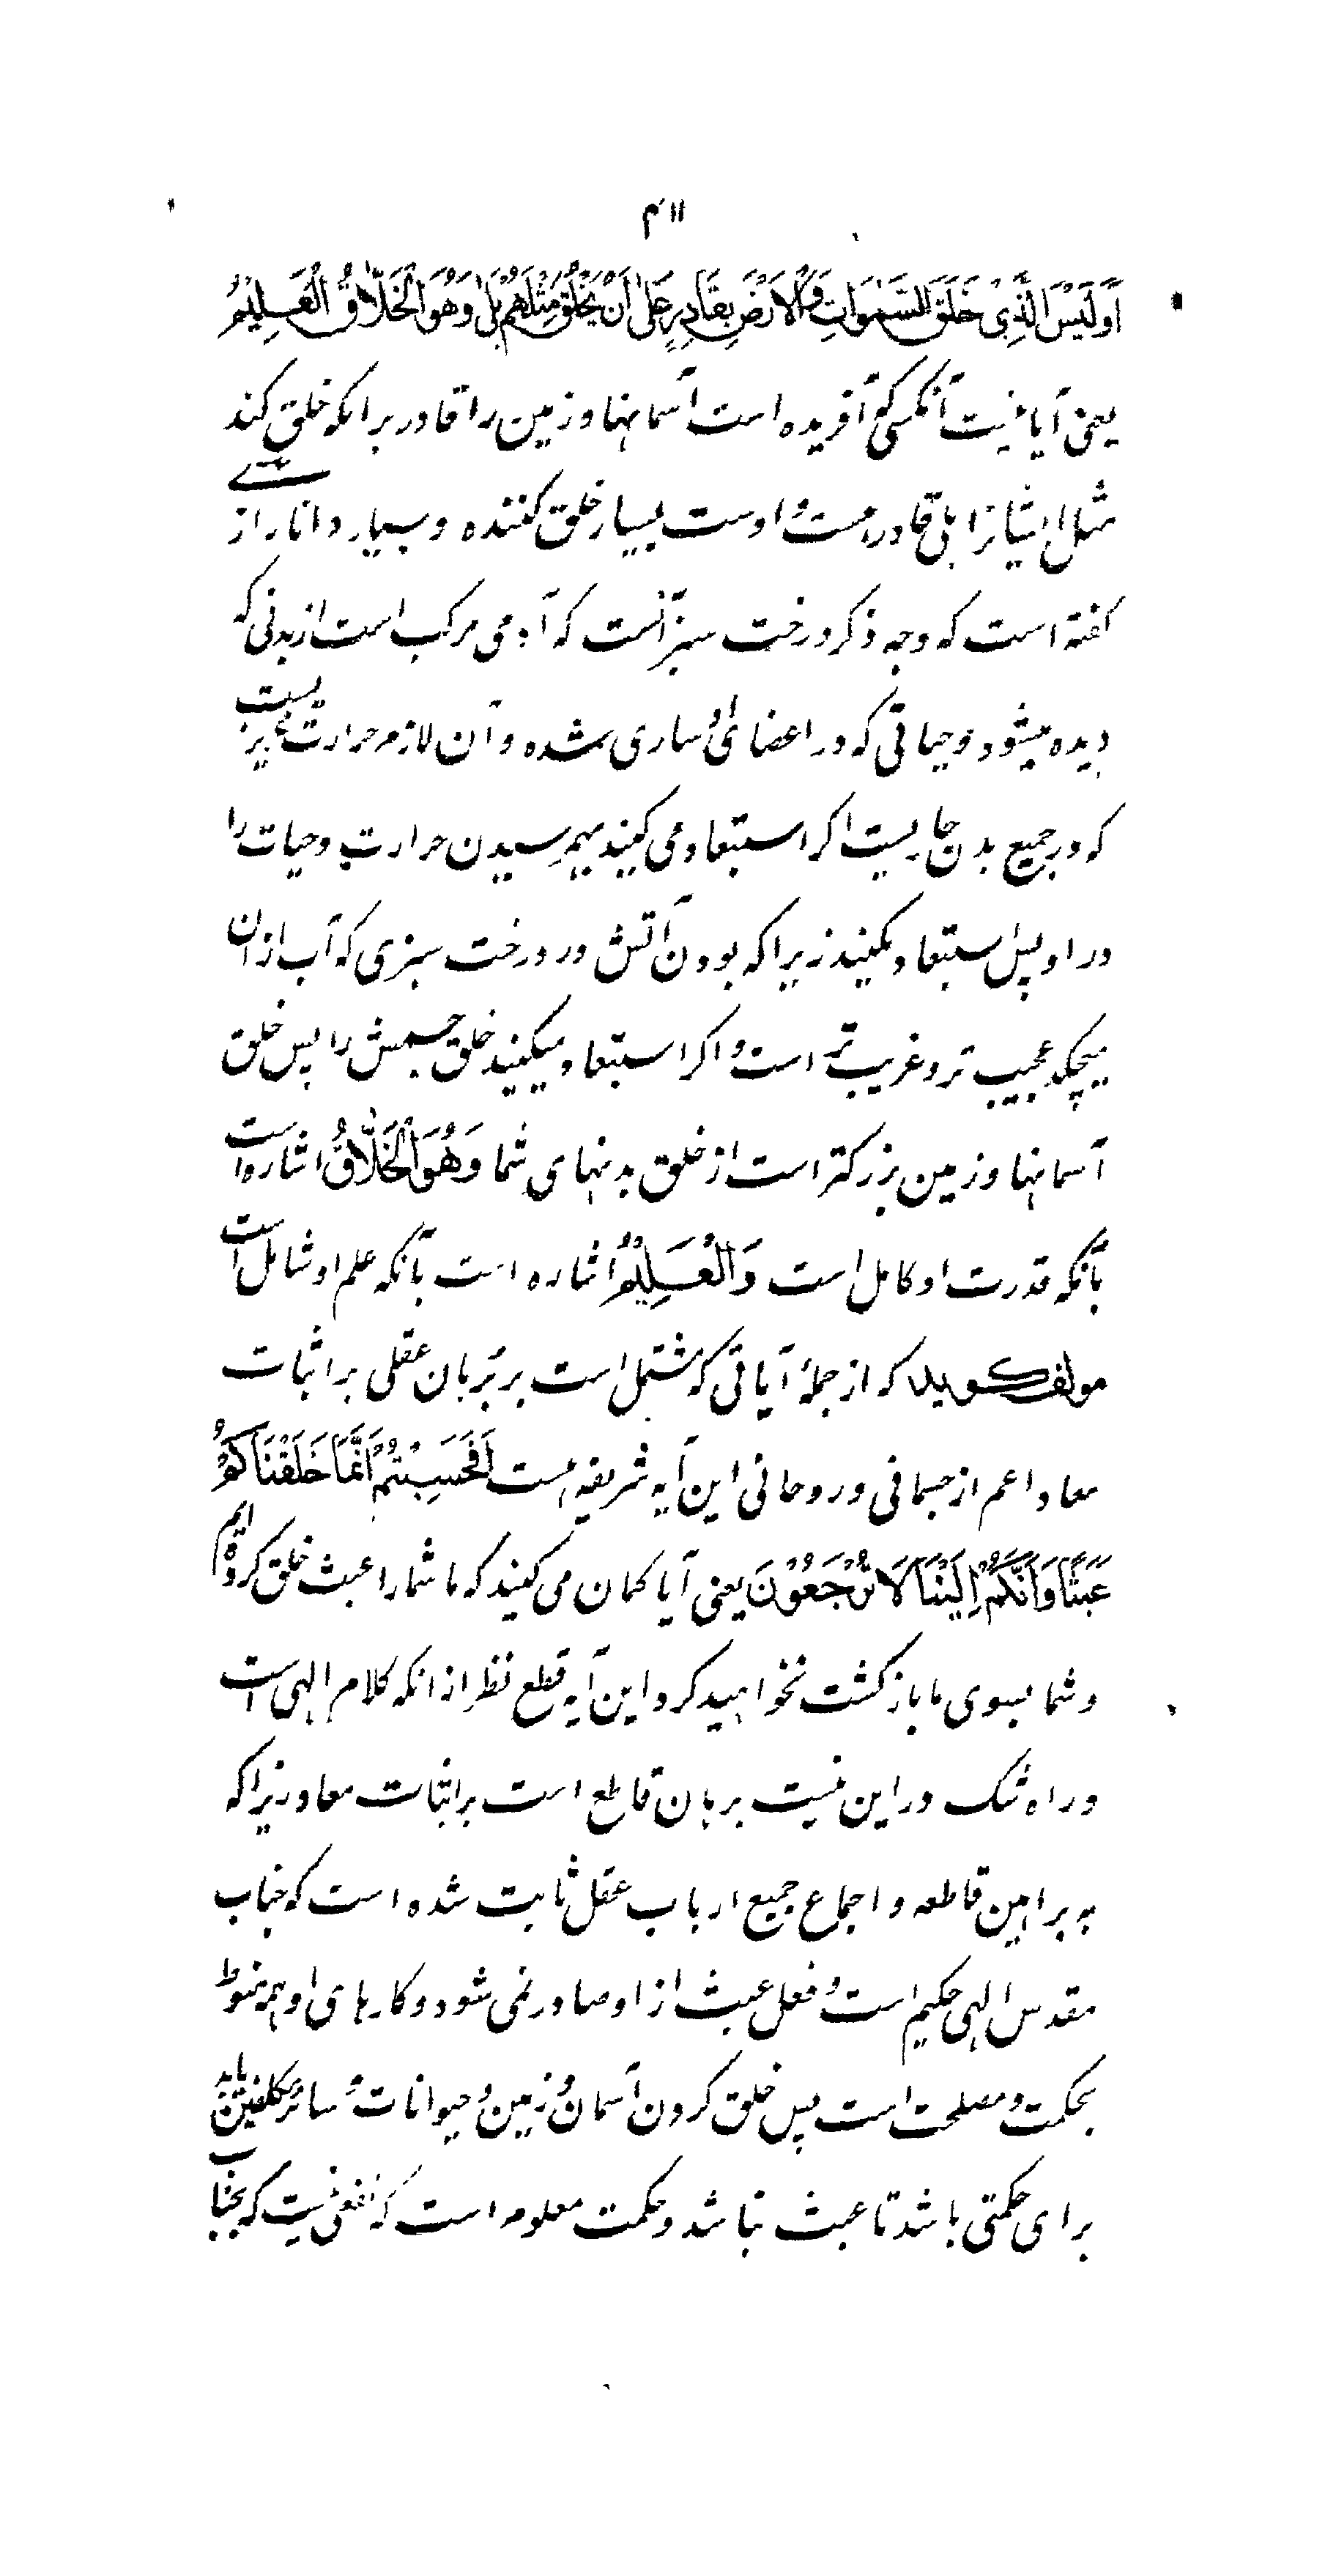 ۴۱۱
اَوَلَيْسَ الَّذِىْ خَلَقَ السَّمٰوَاتِ وَالْاَرْضَ بِقَادِرٍ عَلٰى اَنْ يَخْلُقَ مِثْلَهُمْ بَلٰى وَهُوَ الْخَلَّاقُ الْعَلِيْمُ
یعنی آیا نیست آنکسی که آفریده است آسمانها و زمین را قادر بر انکه خلق کند
مثل ایشانرا بلی قادر هست و اوست بسیار خلق کننده و بسیار دانا رازی
کفته است که وجه ذکر درخت سبز آنست که آدمی مرکب است از بدنی که
دیده میشود و حیاتی که در اعضای او ساری شده و آن لازم حرارت غریزیست
که در جمیع بدن جاریست اکر استبعاد می کنید بهم رسیدن حرارت و حیات را
در او پس استبعاد مکنید زیرا که بودن آتش در درخت سبزی که آب ازان
میچکد عجیب تر و غریب تر است و اکر استبعاد میکنید خلق جسمش را پس خلق
آسمانها و زمین بزرکتر است از خلق بدنهای شما وَهُوَ الْخَلَّاقُ اشاره است
بآنکه قدرت او کامل است وَالْعَلِيْمُ اشاره است بآنکه علم او شامل است
مولف کوید که از جملهٔ آیاتی که مشتمل است بر برهان عقلی بر اثبات
معاد اعم از جسمانی و روحانی این آیه شریفه است اَفَحَسِبْتُمْ اَنَّمَا خَلَقْنَاكُمْ
عَبَثًا وَاَنَّكُمْ اِلَيْنَا لَا تُرْجَعُوْنَ یعنی آیا کمان می کنید که ما شما را عبث خلق کرده‌ایم
و شما بسوی ما باز کشت نخواهید کرد و این آیه قطع نظر از انکه کلام الهی است
و راه شک در این نیست برهان قاطع است بر اثبات معاد زیرا که
به براهین قاطعه و اجماع جمیع ارباب عقل ثابت شده است که جناب
مقدس الهی حکیم است و فعل عبث از او صادر نمی شود و کارهای او همه منوط
بحکمت و مصلحت است پس خلق کردن آسمان و زمین و حیوانات و سائر مکلفین باید
برای حکمتی باشد تا عبث نباشد و حکمت معلوم است که نفعی نیست که بجناب